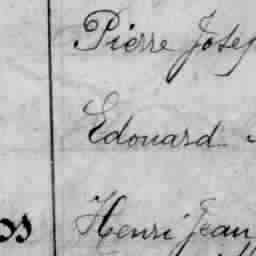 Pierre Josep
Edouard
os Henri Jean